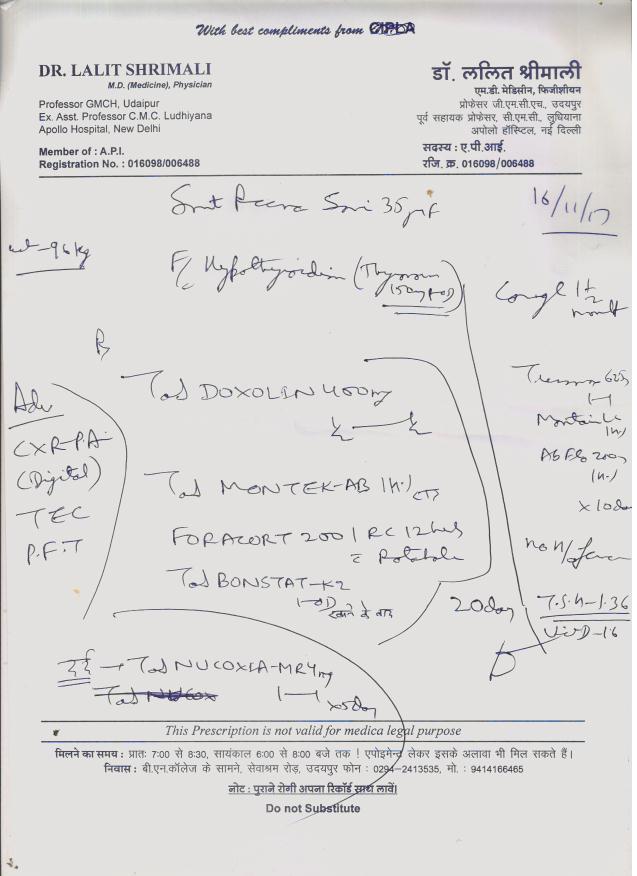 With best compliments from CIPLA
DR. LALIT SHRIMALI
M.D. (Medicine), Physician
Professor GMCH, Udaipur
Ex. Asst. Professor C.M.C. Ludhiyana
Apollo Hospital, New Delhi
Member of : A.P.I.
Registration No. : 016098/006488
डॉ. ललित श्रीमाली
एम.डी. मेडिसीन, फिजीशीयन
प्रोफेसर जी.एम.सी.एच., उदयपुर
पूर्व सहायक प्रोफेसर, सी.एम.सी., लुधियाना
अपोलो हॉस्पिटल, नई दिल्ली
सदस्य : ए.पी.आई.
रजि. क्र. 016098/006488
Smt 35
16/11/17
wt-96kg
Hypothyroidism
Cough
Adv
CXR-PA
(Digital)
TEC
P.F.T
Tab DOXOLIN 400mg
½ ½
Tab MONTEK-AB
FORACORT 200 / RC 12
Rotahale
Tab BONSTAT-K2
1-OD
खाने के बाद
20day
625
x 10da
T.S.H-1.36
Vit D-16
दर्द → Tab NUCOXIA-MR 4mg
x5day
This Prescription is not valid for medica legal purpose
मिलने का समय : प्रातः 7:00 से 8:30, सायंकाल 6:00 से 8:00 बजे तक ! एपोइमेन्ट लेकर इसके अलावा भी मिल सकते हैं।
निवास : बी.एन.कॉलेज के सामने, सेवाश्रम रोड़, उदयपुर फोन : 0294-2413535, मो. : 9414166465
नोट : पुराने रोगी अपना रिकॉर्ड साथ लावें।
Do not Substitute